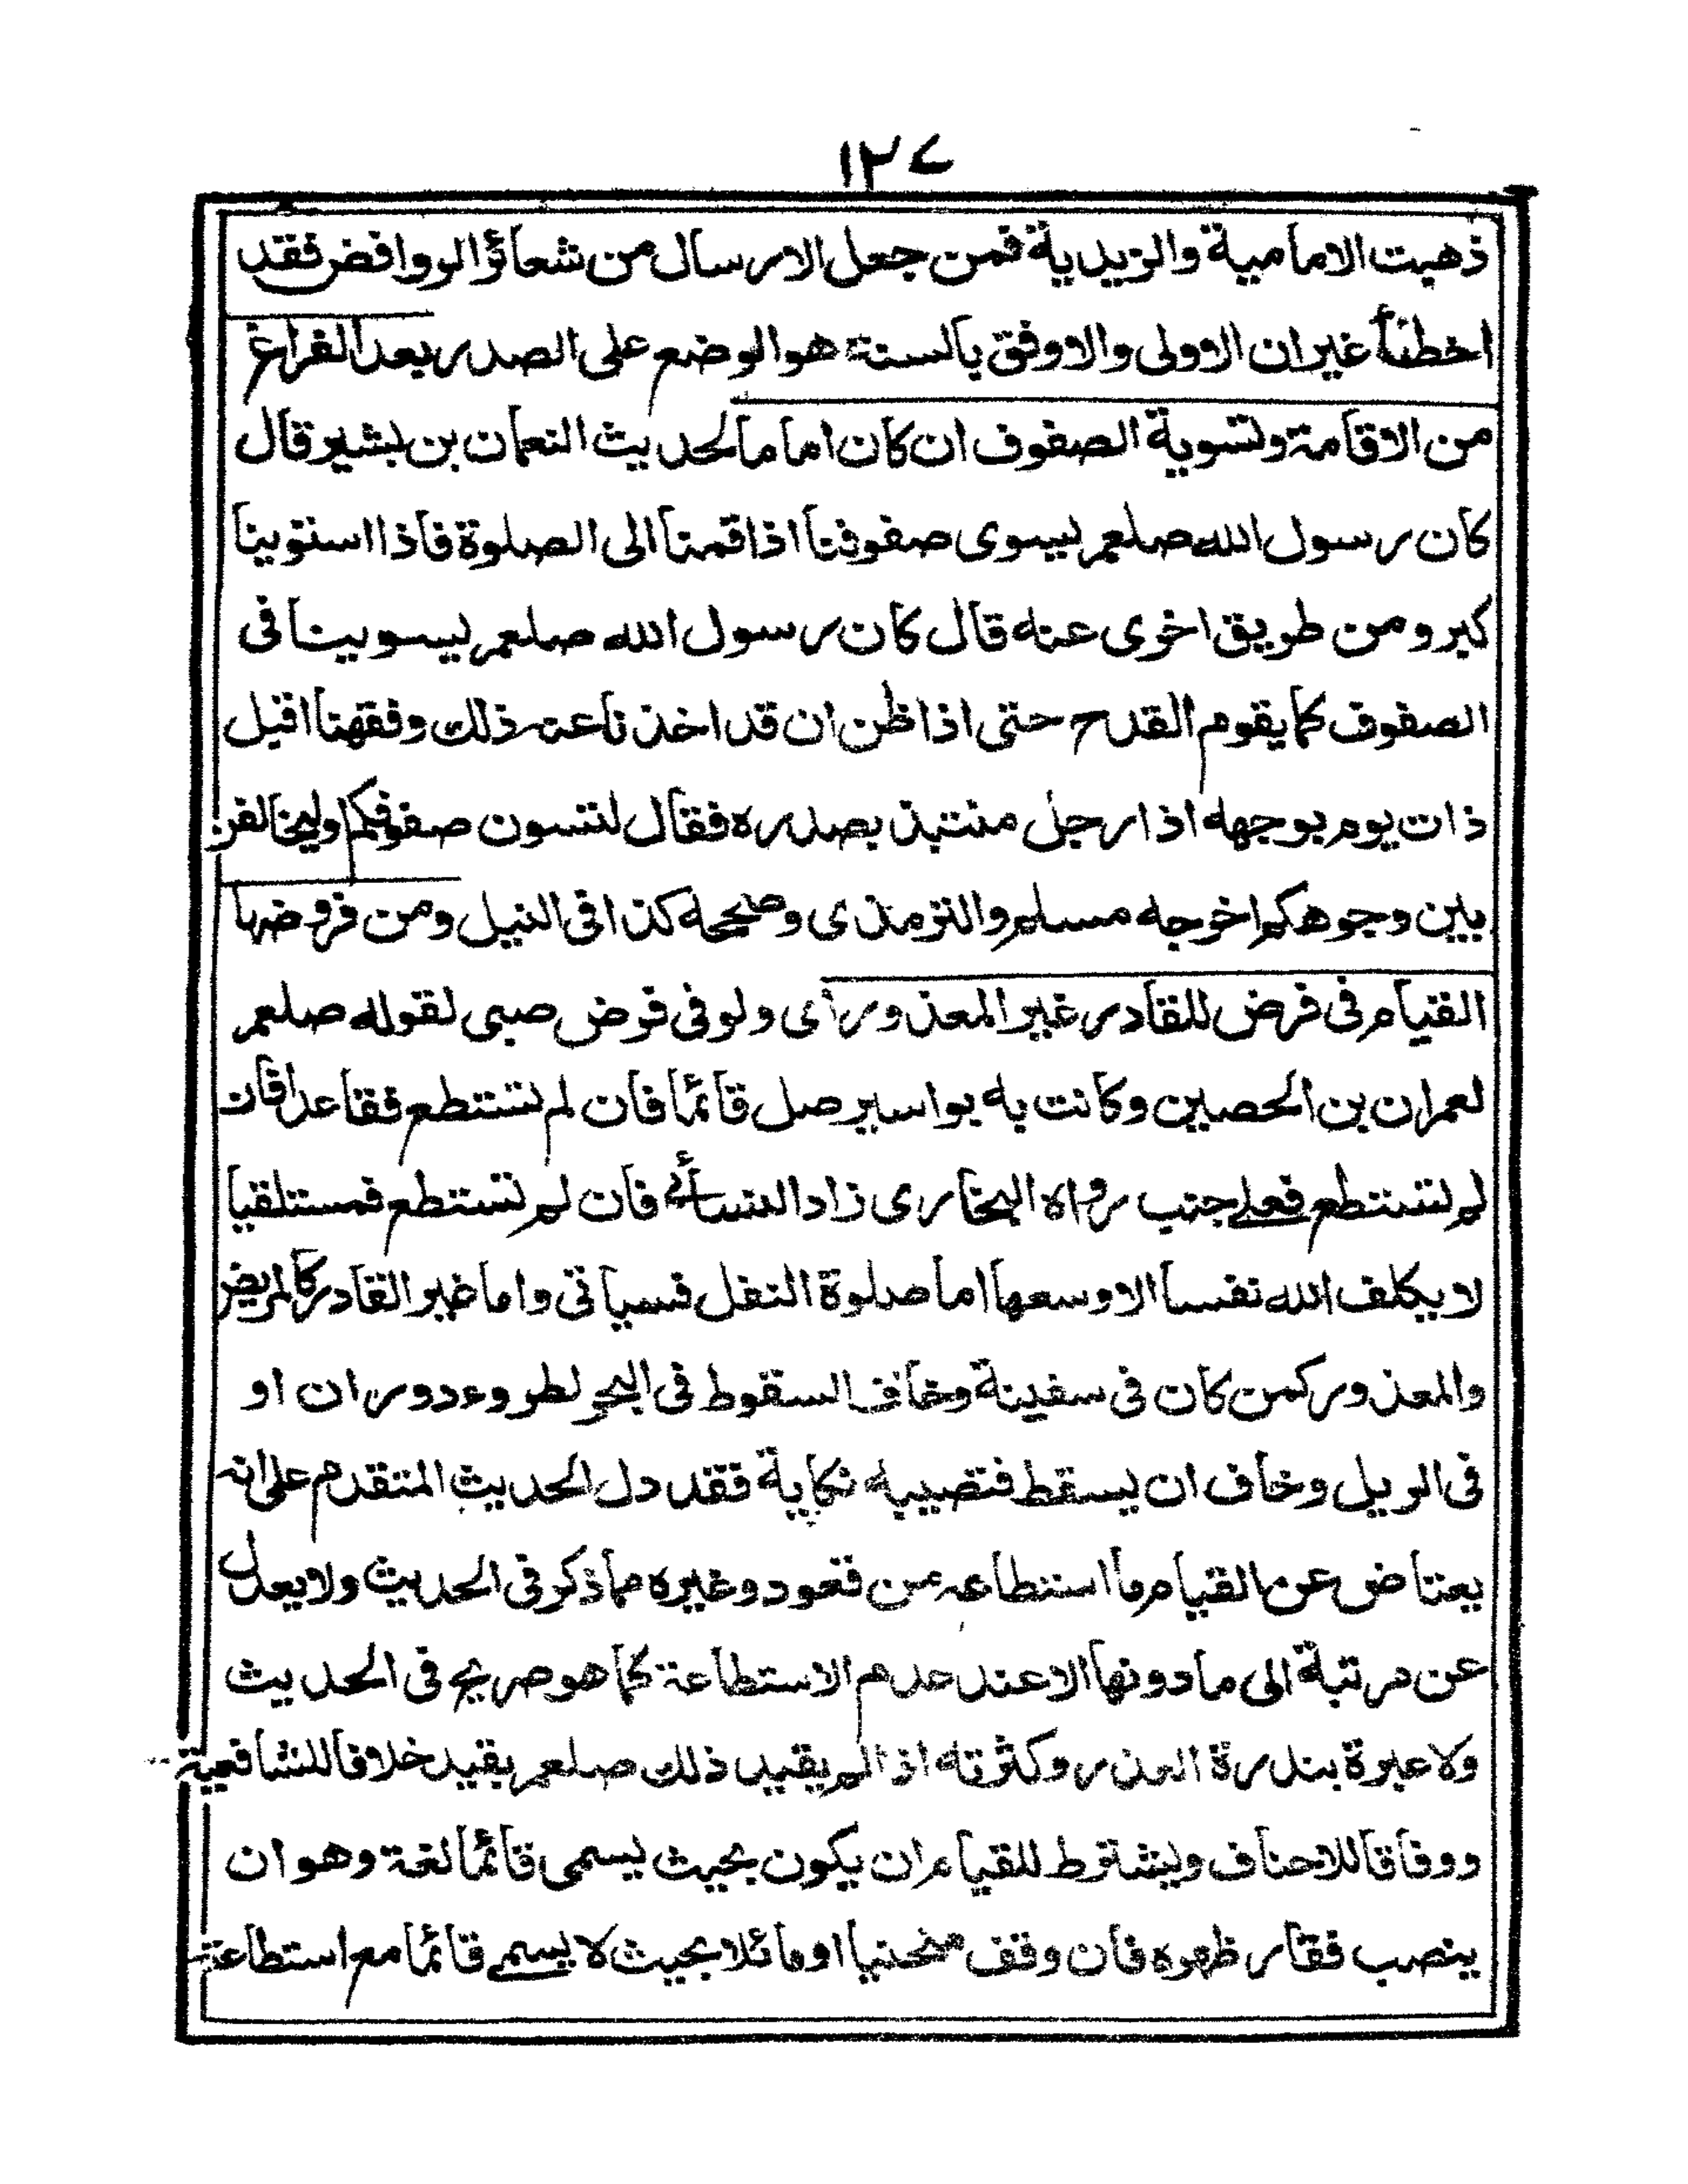 ١٢٧
ذهبت الامامية والزيدية فمن جعل الارسال من شعائر الروافض فقد
اخطأ غير ان الاولى والاوفق بالسنة هو الوضع على الصدر بعد الفراغ
من الاقامة وتسوية الصفوف ان كان اماما لحديث النعمان بن بشير قال
كان رسول الله صلعم يسوى صفوفنا اذا قمنا الى الصلوة فاذا استوينا
كبر ومن طريق اخرى عنه قال كان رسول الله صلعم يسوينا فى
الصفوف كما يقوم القدح حتى اذا ظن ان قد اخذنا عنه ذلك وفقهنا اقبل
ذات يوم بوجهه اذا رجل منتبذ بصدره فقال لتسون صفوفكم او ليخالفن
بين وجوهكم اخرجه مسلم والترمذى وصححه كذا فى النيل ومن فروضها
القيام فى فرض للقادر غير المعذور أى ولو فى فرض صبى لقوله صلعم
لعمران بن الحصين وكانت به بواسير صل قائما فان لم تستطع فقاعدا فان
لم تستطع فعلى جنب رواه البخارى زاد النسائى فان لم تستطع فمستلقيا
لا يكلف الله نفسا الا وسعها اما صلوة النفل فسيأتى واما غير القادر كالمريض
والمعذور كمن كان فى سفينة وخاف السقوط فى البحر لطروء دوران او
فى الريل وخاف ان يسقط فتصيبه نكاية فقد دل الحديث المتقدم على انه
يعتاض عن القيام ما استطاعه من قعود وغيره مما ذكر فى الحديث ولا يعدل
عن مرتبة الى ما دونها الا عند عدم الاستطاعة كما هو صريح فى الحديث
ولا عبرة بندرة العذر وكثرته اذ لم يقيد ذلك صلعم بقيد خلافا للشافعية
ووفاقا للاحناف ويشترط للقيام ان يكون بحيث يسمى قائما لغة وهو ان
ينصب فقار ظهره فان وقف منحنيا او مائلا بحيث لا يسمى قائما مع استطاعة